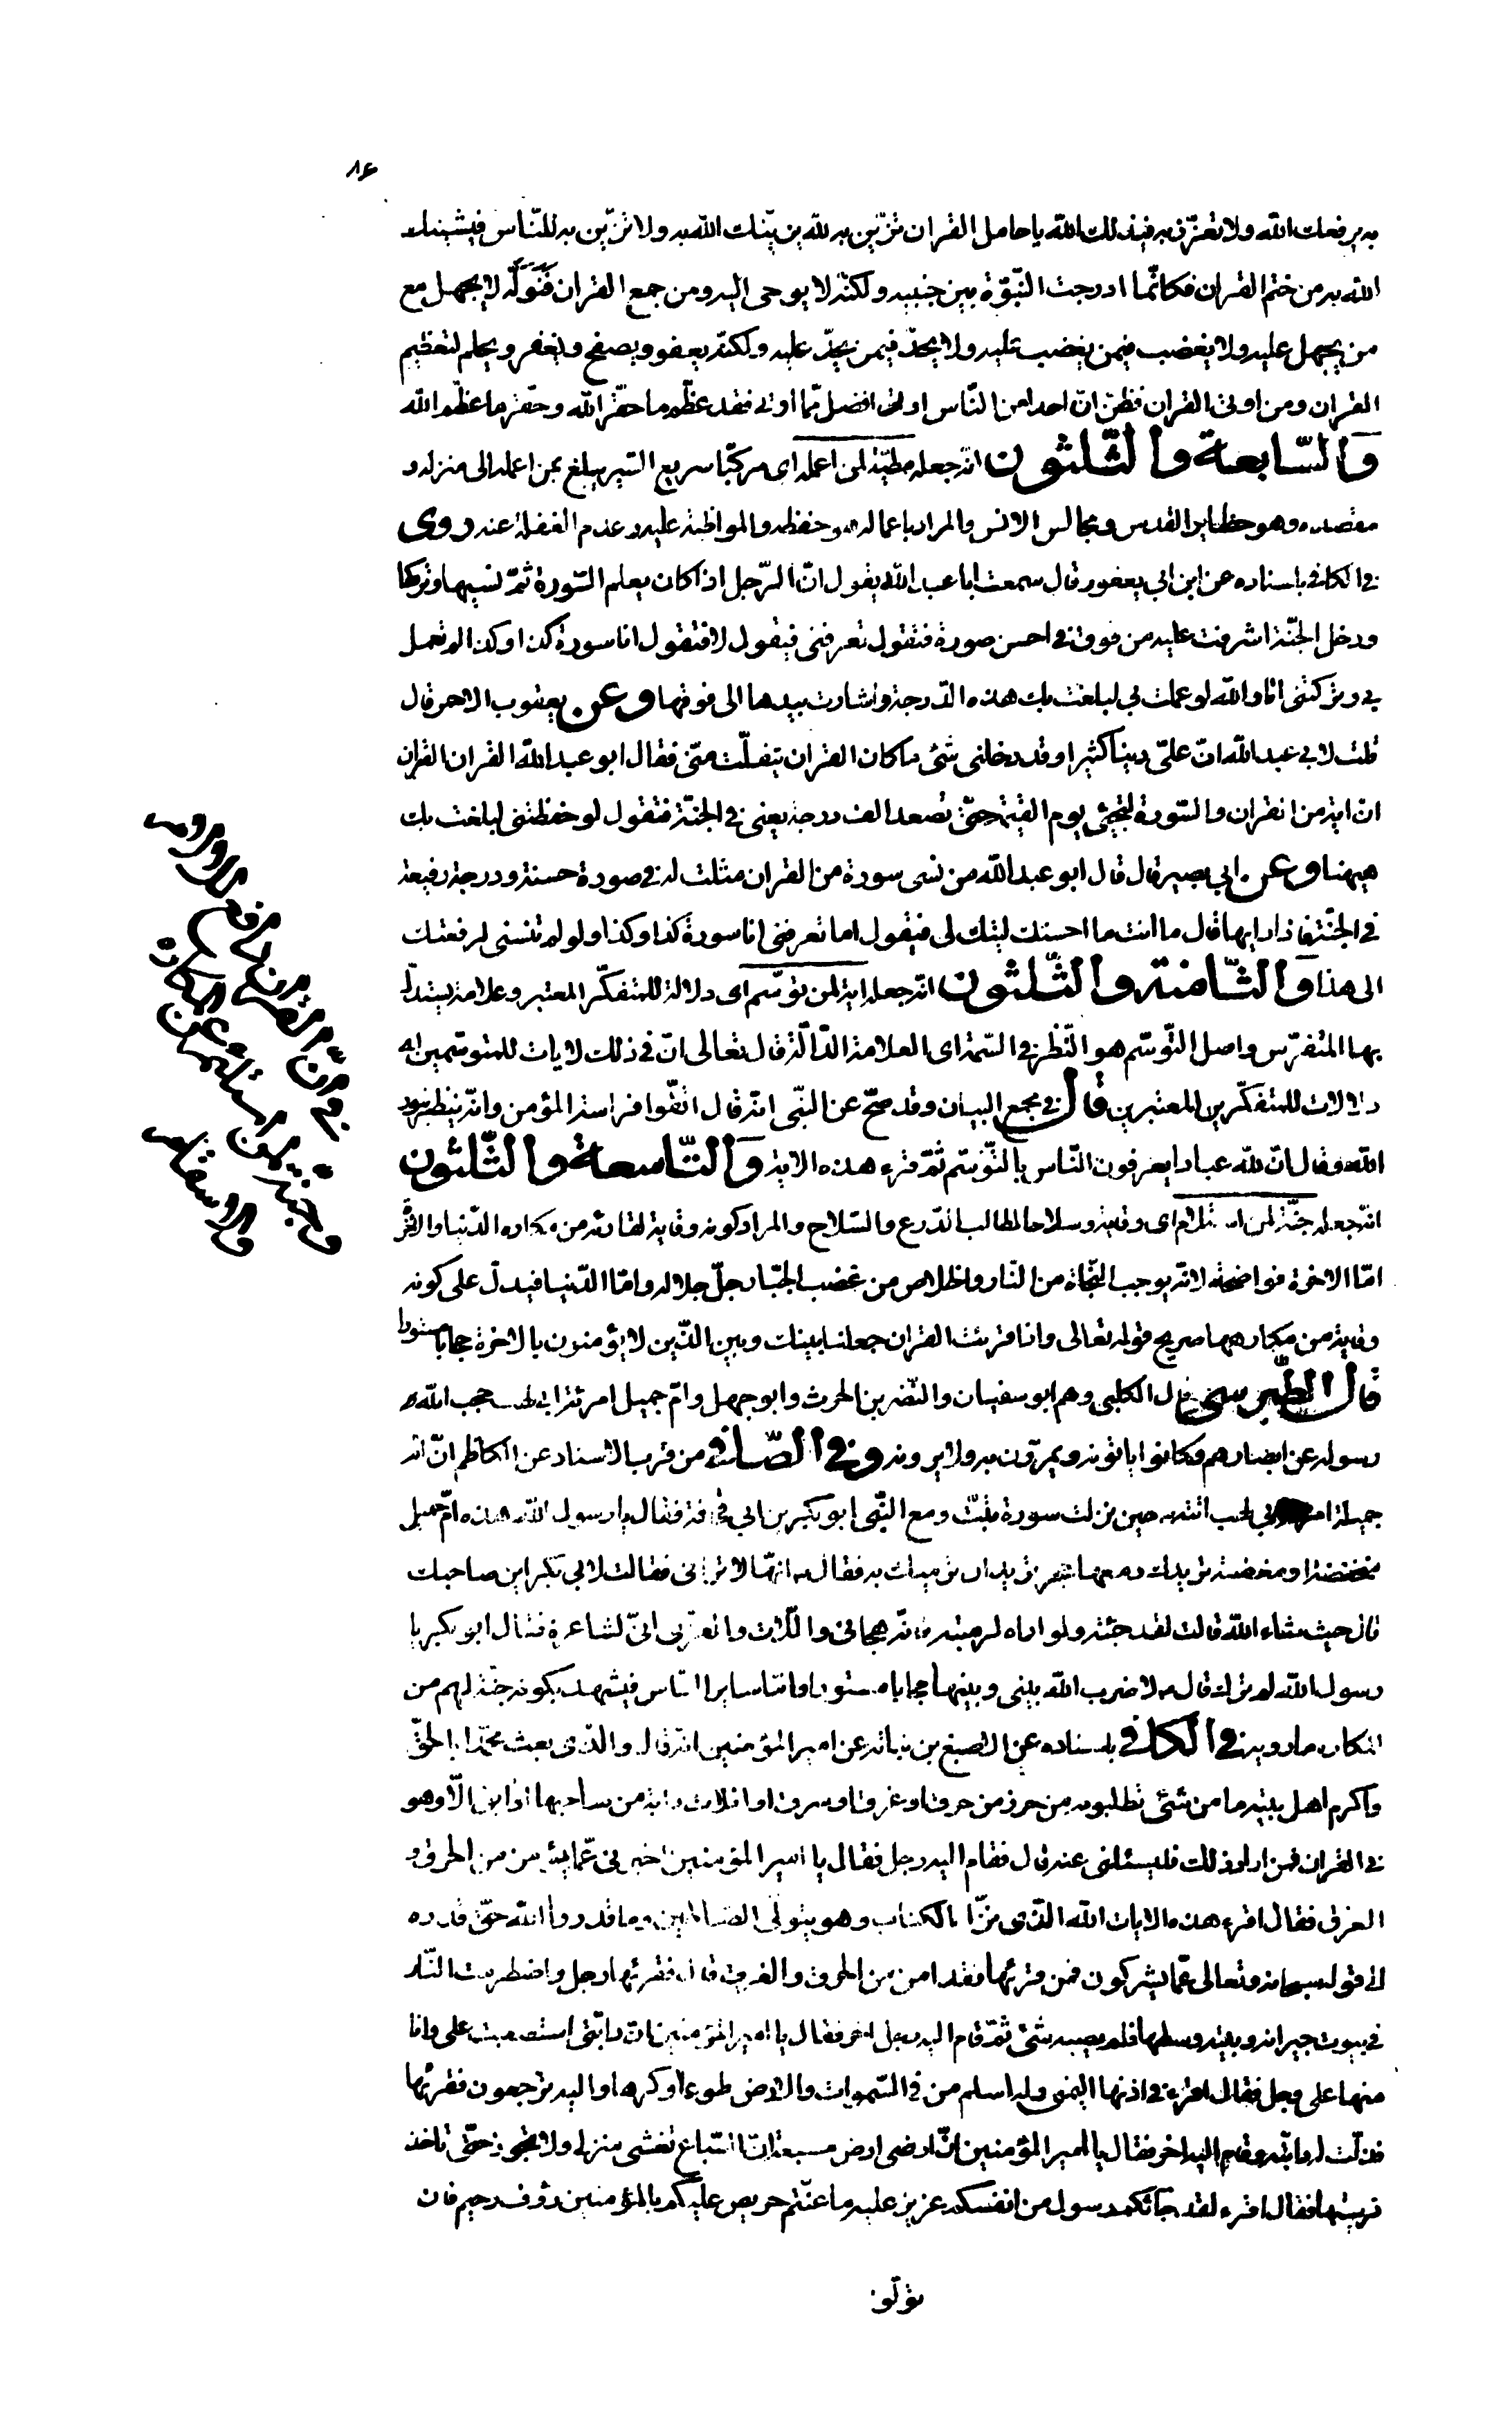 ٨٤
به يرفعك الله ولا تعزّز به فيذلك الله يا حامل القران تزيّن به لله يزيّنك الله به ولا تزيّن به للنّاس فيشينك
الله به من ختم القران فكانّما ادرجت النّبوّة بين جنبيه ولكنّه لا يوحى اليه ومن جمع القران فَنَوْلُه لا يجهل مع
من يجهل عليه ولا يغضب فيمن يغضب عليه ولا يحدّ فيمن يحدّ عليه ولكنّه يعفو ويصفح ويغفر ويحلم لتعظيم
القران ومن اوتى القران فظنّ انّ احدا من النّاس اوتى افضل ممّا اوتى فقد عظّم ما حقّر الله وحقّر ما عظّم الله
وَالسّابعة والثّلثون انّه جعله مطيّة لمن اعمله اى مركبّا سريع السّير يبلغ بمن اعمله الى منزله و
مقصده وهو حظاير القدس ومجالس الانس والمراد باعماله حفظه والمواظبة عليه وعدم الغفلة عنه روى
فى الكافى باسناده عن ابن ابى يعفور قال سمعت ابا عبد الله يقول انّ الرّجل اذا كان يعلم السّورة ثمّ نسيها وتركها
ودخل الجنّة اشرفت عليه من فوق فى احسن صورة فتقول تعرفنى فيقول لا فتقول انا سورة كذا وكذا لم تعمل
بى وتركتنى اما والله لو عملت بى لبلغت بك هذه الدّرجة واشارت بيدها الى فوقها وعن يعقوب الاحمر قال
قلت لابى عبد الله انّ علىّ دينا كثيرا وقد دخلنى شئ ما كان القران يتفلّت منّى فقال ابو عبد الله القران القران
ان اية من القران والسّورة لتجئ يوم القيمة حتّى تصعد الف درجة يعنى فى الجنّة فتقول لو حفظتنى لبلغت بك
ههنا وعن ابى بصير قال قال ابو عبد الله من نسى سورة من القران مثلت له فى صورة حسنة ودرجة رفيعة
فى الجنّة فاذا راها قال ما انت ما احسنك ليتك لى فيقول اما تعرفنى انا سورة كذا وكذا ولو لم تنسنى لرفعتك
الى هذا وَالثّامنة والثّلثون انّه جعله اية لمن توسّم اى دلالة للمتفكّر المعتبر وعلامة يستدلّ
بها المتفرّس واصل التّوسّم هو النّظر فى السّمة اى العلامة الدّالّة قال تعالى انّ فى ذلك لايات للمتوسّمين اى
دلالات للمتفكّرين المعتبرين قال فى مجمع البيان وقد صحّ عن النّبى انّه قال اتّقوا فراسة المؤمن وانّه ينظر بنور
الله وقال انّ لله عبادا يعرفون النّاس بالتّوسّم ثمّ قرء هذه الاية وَالتّاسعة والثّلثون
انّه جعله جنّة لمن استلأم اى وقاية وسلاحا لطالب الدّرع والسّلاح والمراد كونه وقاية لقاريه من مكاره الدّنيا والاخرة
امّا الاخرة فواضحة لانّه يوجب النّجاة من النّار والخلاص من غضب الجبّار جلّ جلاله وامّا الدّنيا فيدلّ على كونه
وقاية من مكارهها صريح قوله تعالى واذا قرئت القران جعلنا بينك وبين الذّين لا يؤمنون بالاخرة حجابا مستورا
قال الطّبرسى قال الكلبى وهم ابو سفيان والنّضر بن الحرث وابو جهل وامّ جميل امرئة ابى لهب حجب الله
رسوله عن ابصارهم وكانوا ياتونه ويمرّون به ولا يرونه وفى الصّافى من قرب الاسناد عن الكاظم انّ امّ
جميلة امرئة ابى لهب اتته حين نزلت سورة تبّت ومع النّبى ابو بكر بن ابى قحافة فقال يا رسول الله هذه امّ جميل
محفظة او مغضبة تريدك ومعها حجر تريد ان ترميك به فقال انّها لا ترانى فقالت لابى بكر اين صاحبك
قال حيث شاء الله قالت لقد جئته ولو اراه لرميته فانّه هجانى واللّات والعزّى انّى لشاعرة فقال ابو بكر يا
رسول الله لم ترك قال لا ضرب الله بينى وبينها حجابا مستورا وامّا ساير النّاس فيشهد بكونه جنّة لهم من
المكاره ما رويه فى الكافى باسناده عن الاصبغ بن نباته عن امير المؤمنين انّه قال والذّى بعث محمّدا بالحقّ
واكرم اهل بيته ما من شئ تطلبونه من حرز من حرق او غرق او سرق او افلات دابّة من صاحبها او ابق الّا وهو
فى القران فمن اراد ذلك فليسئلنى عنه قال فقام اليه رجل فقال يا امير المؤمنين اخبرنى عمّا يؤمن من الحرق و
الغرق فقال اقرء هذه الايات الله الذّى نزّل الكتاب وهو يتولّى الصّالحين وما قدروا الله حقّ قدره
الى قوله سبحانه وتعالى عمّا يشركون فمن قرئها فقد امن من الحرق والغرق قال فقرئها رجل واضطرمت النّار
فى بيوت جيرانه وبيته وسطها فلم يصبه شئ ثمّ قام اليه رجل اخر فقال يا امير المؤمنين انّ دابّتى استصعبت على وانا
منها على وجل فقال اقرء فى اذنها اليمنى وله اسلم من فى السّموات والارض طوعا وكرها واليه ترجعون فقرئها
فذلّت له دابّته وقام اليه اخر فقال يا امير المؤمنين انّ ارضى ارض مسبعة انّ السّباع تغشى منزلى ولا تجوز حتّى تاخذ
فريستها فقال اقرء لقد جائكم رسول من انفسكم عزيز عليه ما عنتّم حريص عليكم بالمؤمنين رؤف رحيم فان
تولّو